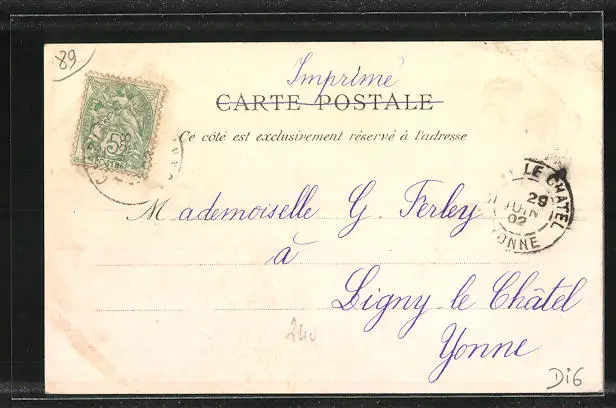 89
Imprimé
CARTE POSTALE
Ce côté est exclusivement réservé à l'adresse
5c
LE CHATEL
29
JUIN
02
YONNE
Mademoiselle G. Ferley
à
Ligny le Châtel
Yonne
Di6